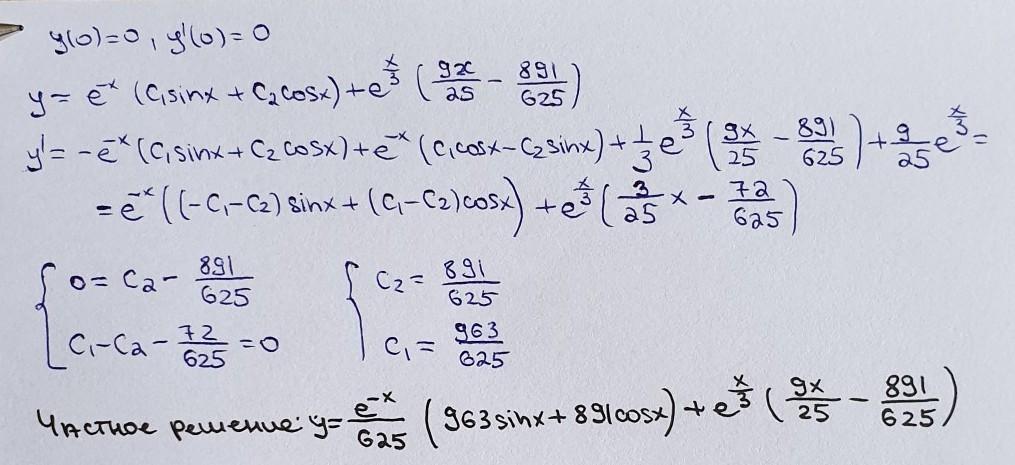 y(0)=0, y'(0)=0
y = e^{-x} (C₁sinx + C₂cosx) + e^{x/3} (9x/25 - 891/625)
y' = -e^{-x} (C₁sinx + C₂cosx) + e^{-x} (C₁cosx - C₂sinx) + 1/3 e^{x/3} (9x/25 - 891/625) + 9/25 e^{x/3} =
= e^{-x} ((-C₁-C₂) sinx + (C₁-C₂)cosx) + e^{x/3} (3/25 x - 72/625)
{ 0 = C₂ - 891/625 { C₂ = 891/625
C₁-C₂ - 72/625 = 0 C₁ = 963/625
Частное решение: y = e^{-x}/625 (963sinx + 891cosx) + e^{x/3} (9x/25 - 891/625)